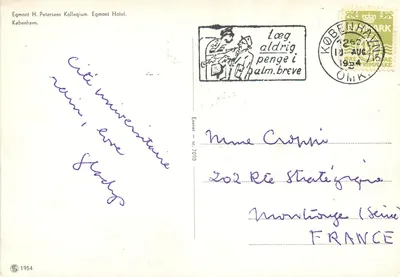 Egmont H. Petersens Kollegium. Egmont Hotel.
København.
Læg
aldrig
penge i
alm. breve
KØBENHAVN
1954
OMK.
DANMARK
Cité universitaire
rain, love
Gladys
Mme Croppi
202 Rte Stratégique
Montrouge (Seine)
FRANCE
1954